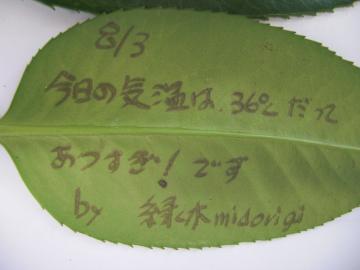 8/3
今日の気温は、36℃だって
あつすぎ!です
by 緑木midorigi